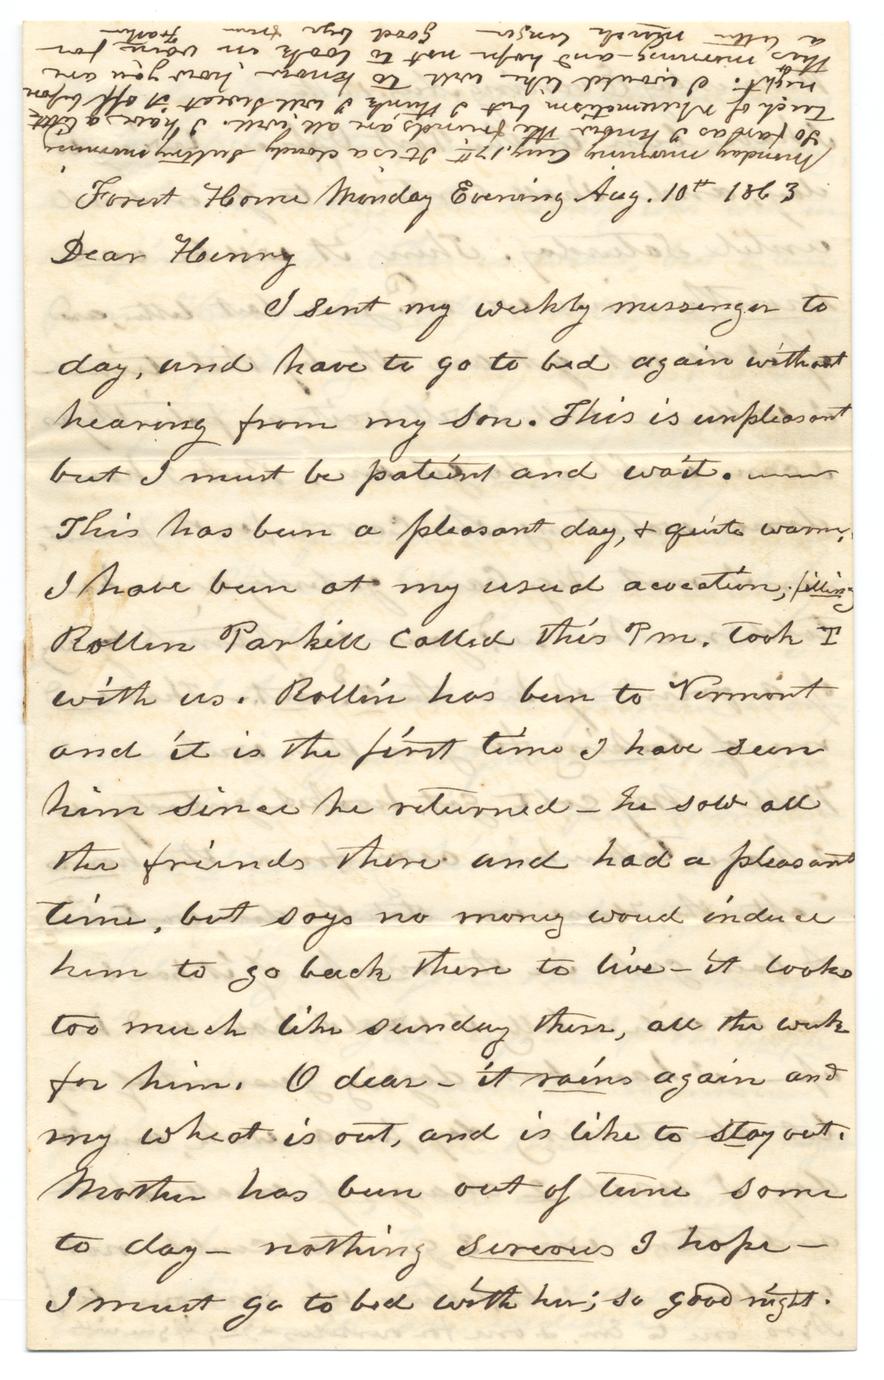 Forest Home Monday Evening Aug. 10th 1863
Dear Henry
I sent my weekly messenger to
day, and have to go to bed again without
hearing from my son. This is unpleasant
but I must be patient and wait.
This has been a pleasant day, & quite warm.
I have been at my usual avocation,
Rollin Parkill called this P.m. took T
with us. Rollin has been to Vermont
and it is the first time I have seen
him since he returned - he saw all
the friends there and had a pleasant
time, but says no money woud induce
him to go back there to live - it looks
too much like sunday there, all the week
for him. O dear - it rains again and
my wheat is out, and is like to stay out.
Mother has been out of tune some
to day - nothing sereous I hope -
I must go to bed with her; so good night.
Monday morning Aug. 17th It is a cloudy sultry morning
So far as I know the friends are all well. I have a little
touch of rheumatism but I think I will sweat it off before
night. I would like well to know how you are
this morning - and hope not to look in vain for
a letter much longer good bye from Father